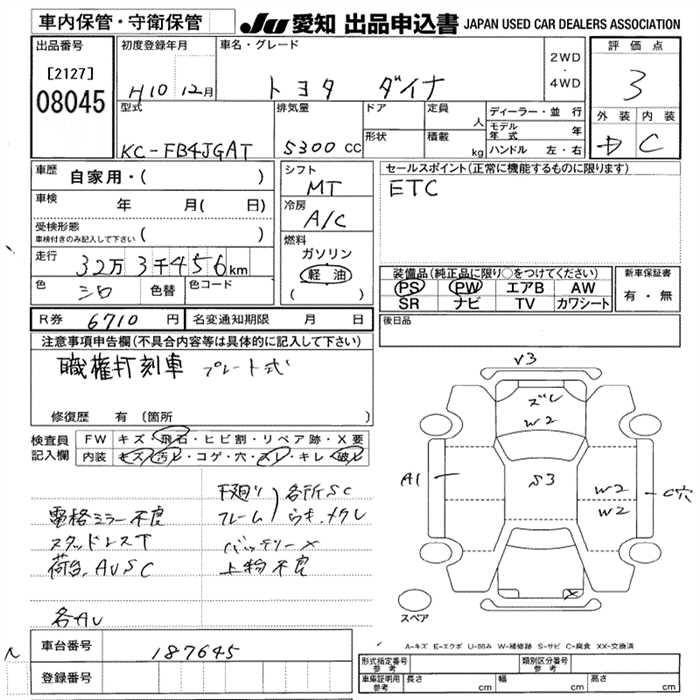 車内保管・守衛保管
JU 愛知 出品申込書 JAPAN USED CAR DEALERS ASSOCIATION
出品番号
[2127]
08045
初度登録年月
H10 12月
車名・グレード
トヨタ ダイナ
2WD
・
4WD
評価点
3
外装 内装
C
型式
KC-FB4JGAT
排気量
5300 CC
ドア
定員
人
形状
積載
kg
ディーラー・並行
モデル年式 年
ハンドル 左・右
車歴
自家用・( )
車検
年 月( 日)
受検形態
車検付きのみ記入して下さい ( )
走行
32万 3千456km
色
シロ
色替
色コード
シフト
MT
冷房
A/C
燃料
ガソリン
軽油
( )
セールスポイント(正常に機能するものに限ります)
ETC
装備品(純正品に限り○をつけてください)
PS PW エアB AW
SR ナビ TV カワシート
新車保証書
有・無
R券 6710 円 名変通知期限 月 日
後日品
注意事項申告欄(不具合内容等は具体的に記入して下さい)
職権打刻車 プレート式
修復歴 有(箇所 )
検査員
記入欄
FW キズ・飛石・ヒビ割・リペア跡・X要
内装 キズ・汚レ・コゲ・穴・スレ・キレ・破レ
下廻り 各所SC
フレーム ウキ.メクレ
電格ミラー不良
スタッドレスT
バッテリー×
荷台AUSC
上物不良
各AU
V3
ズレ
W2
A1
S3
W2
W2
C穴
X
スペア
A-キズ E-エクボ U-凹み W-補修跡 S-サビ C-腐食 XX-交換済
車台番号 187645
登録番号
形式指定番号
参考
類別区分番号
参考
車庫証明用
参考
長さ cm 幅 cm 高さ cm